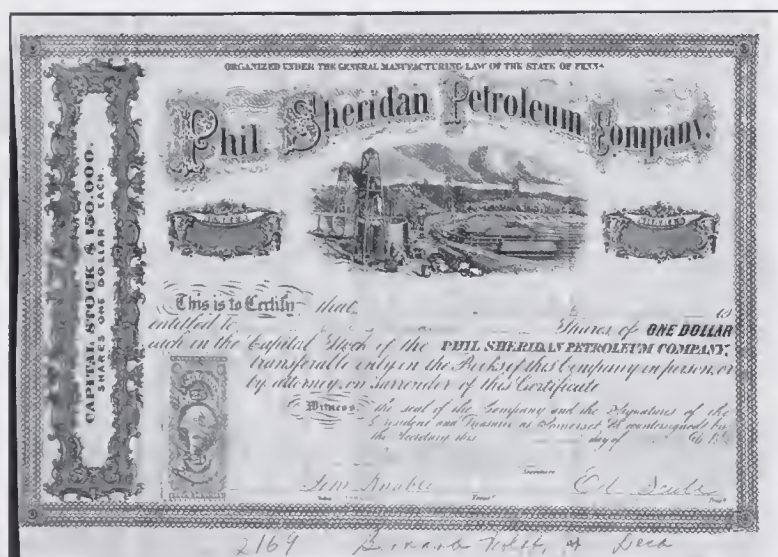 ORGANIZED UNDER THE GENERAL MANUFACTURING LAW OF THE STATE OF PENNA
Phil. Sheridan Petroleum Company.
CAPITAL STOCK $150.000.
SHARES ONE DOLLAR EACH.
SHARES
This is to Certify that is
entitled to Shares of ONE DOLLAR
each in the Capital Stock of the PHIL SHERIDAN PETROLEUM COMPANY,
transferable only in the Books of this Company in person, or
by attorney, on Surrender of this Certificate
Witness, the seal of the Company and the Signatures of the
President and Treasurer at Somerset Pa countersigned by
the Secretary this day of
Secretary
2164